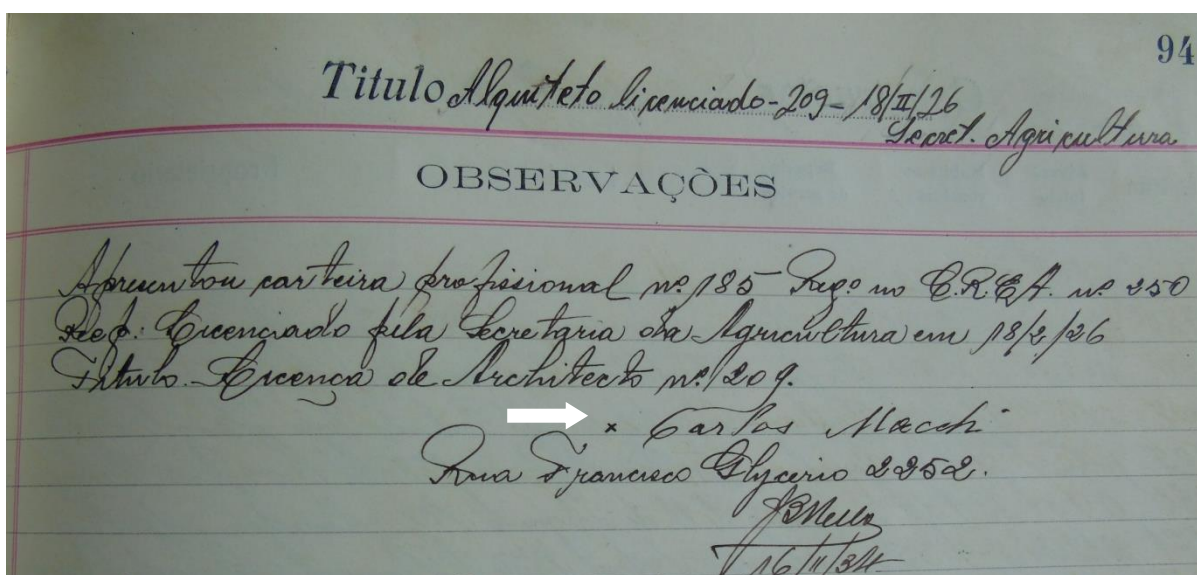 94
Titulo Alquiteto licenciado - 209 - 18/II/26
Secret. Agricultura
OBSERVAÇÕES
Apresentou carteira profissional nº 185 Reg.o no C.R.E.A. nº 250
Licenciado pela Secretaria da Agricultura em 18/2/26
Titulo. Licença de Architecto nº 209.
x Carlos Macchi
Rua Francisco Glycerio 2252.
16/11/34